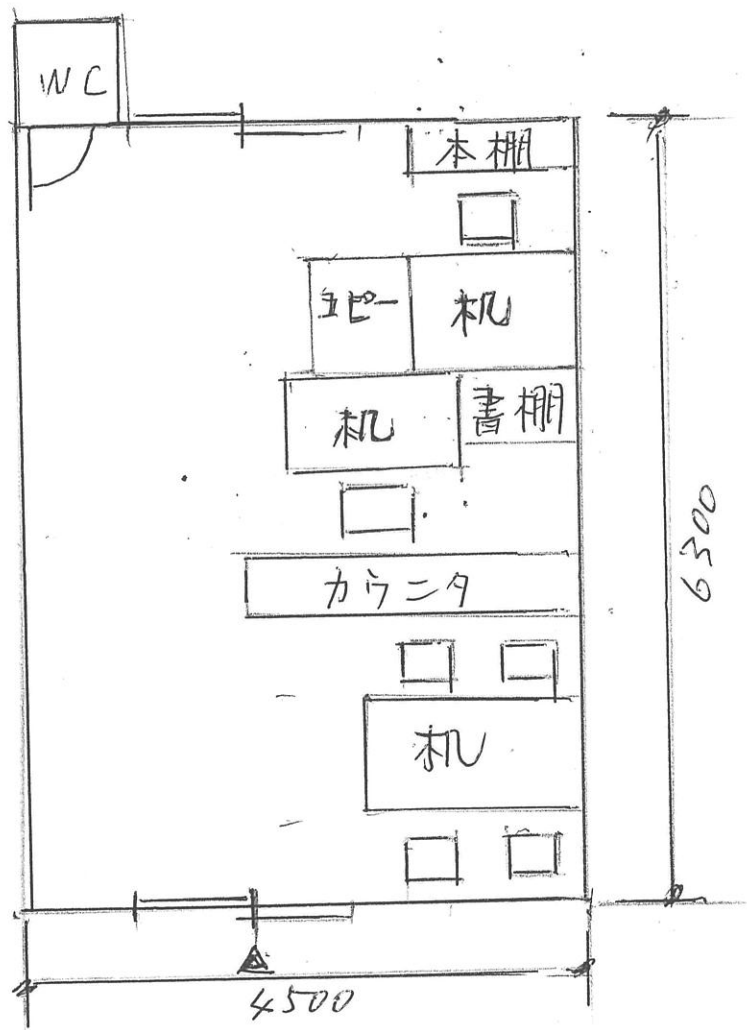 WC
本棚
コピー
机
机
書棚
カウンタ
机
6300
4500